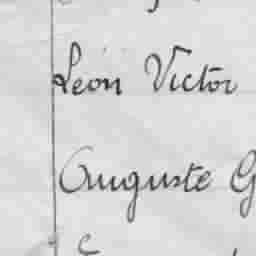 Léon Victor
Auguste G